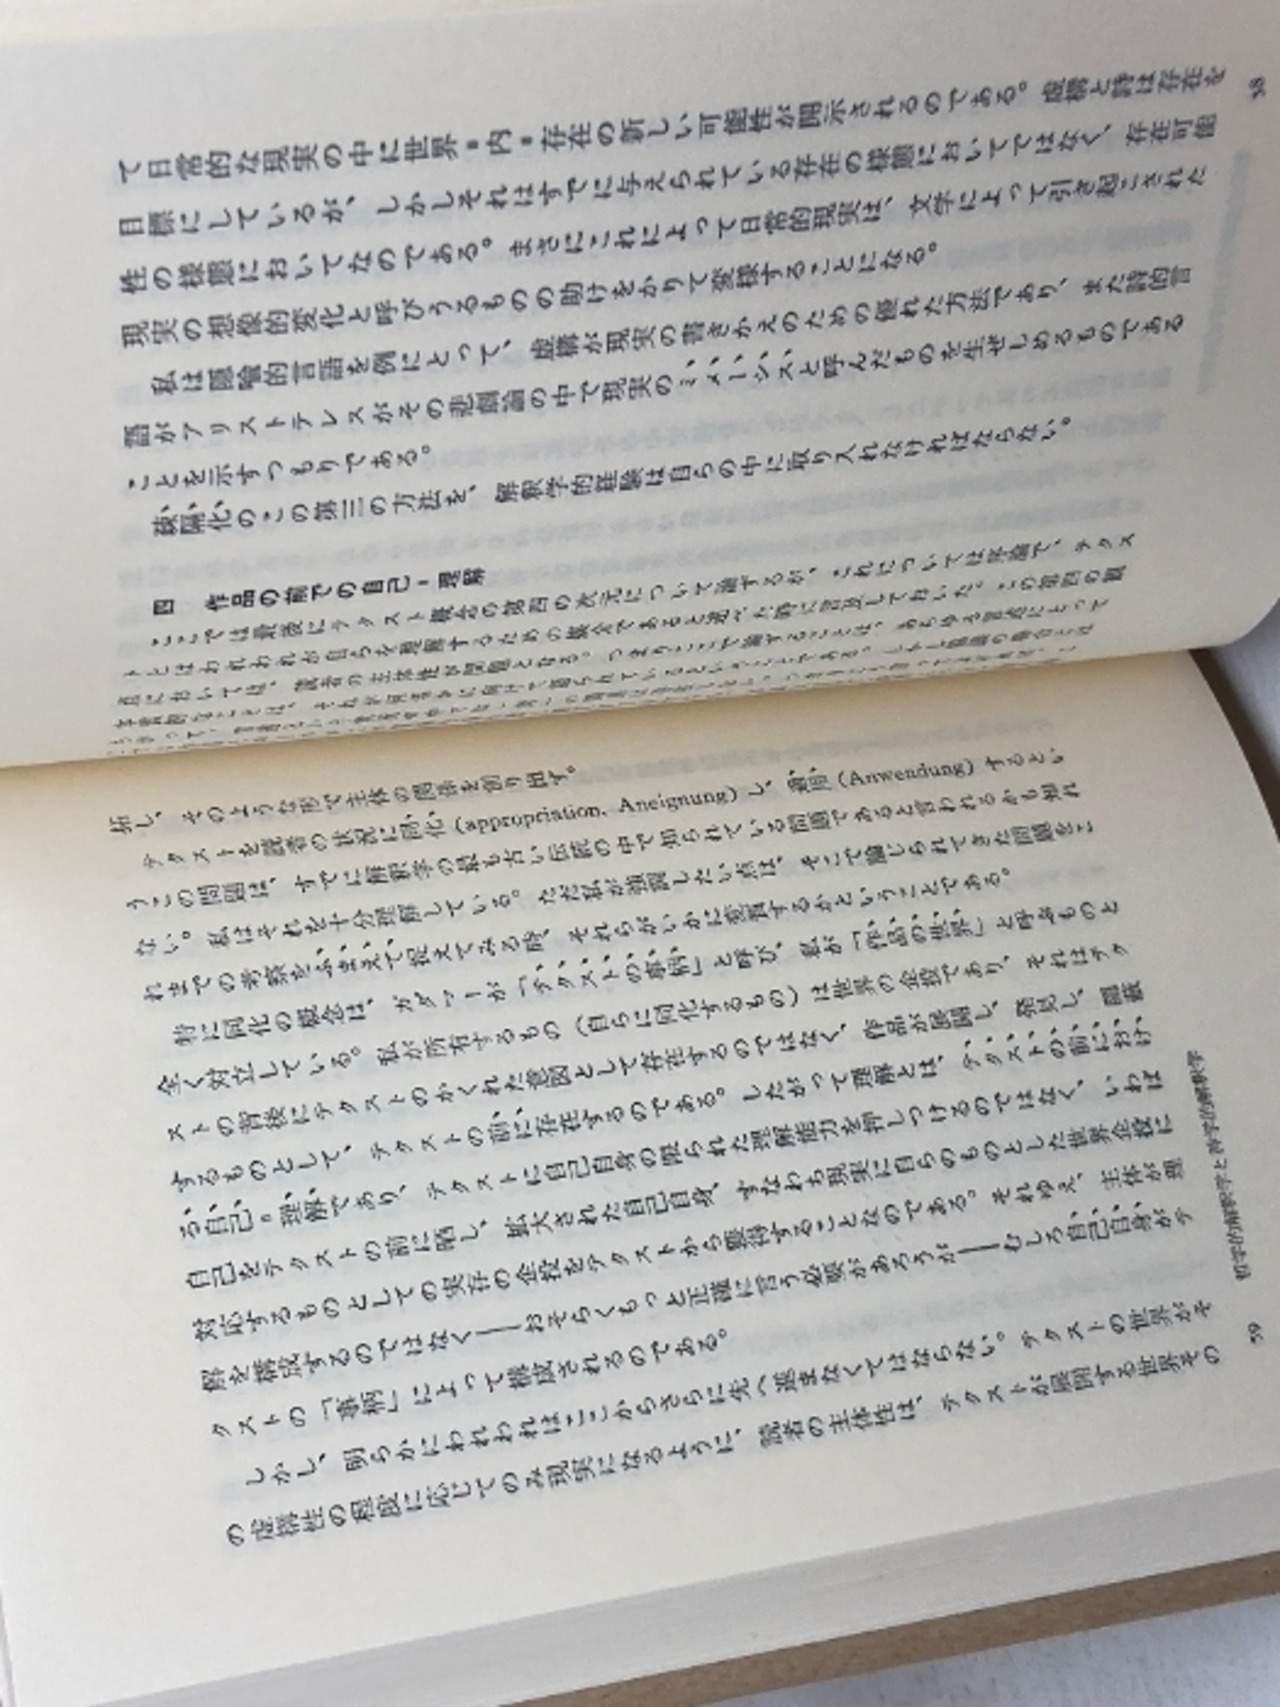 58
て日常的な現実の中に世界=内=存在の新しい可能性が開示されるのである。虚構と詩は存在を
目標にしているが、しかしそれはすでに与えられている存在の様態においてではなく、存在可能
性の様態においてなのである。まさにこれによって日常的現実は、文学によって引き起こされた
現実の想像的変化と呼びうるものの助けをかりて変様することになる。
私は隠喩的言語を例にとって、虚構が現実の書きかえのための優れた方法であり、また詩的言
語がアリストテレスがその悲劇論の中で現実のミメーシスと呼んだものを生ぜしめるものである
ことを示すつもりである。
疎隔化のこの第三の方法を、解釈学的経験は自らの中に取り入れなければならない。
四 作品の前での自己=理解
ここでは最後にテクスト概念の第四の次元について論ずるが、これについては序論で、テクス
トとはわれわれが自らを理解するための媒介であると述べた時に言及しておいた。この第四の観
点においては、読者の主体性が問題となる。つまりここで論ずることは、あらゆる言述にとって
それが何者かに向けて語られているということである。しかし
析し、そのような形で主体の関係を創り出す。
テクストを読者の状況に同化 (appropriation, Aneignung) し、適用 (Anwendung) するとい
うこの問題は、すでに解釈学の最も古い伝統の中で知られている問題であると言われるかも知れ
ない。私はそれを十分理解している。ただ私が強調したい点は、そこで論じられてきた問題をこ
れまでの考察をふまえて捉えてみる時、それらがいかに変貌するかということである。
特に同化の概念は、ガダマーが「テクストの事柄」と呼び、私が「作品の世界」と呼ぶものと
全く対立している。私が所有するもの（自らに同化するもの）は世界の企投であり、それはテク
ストの背後にテクストのかくれた意図として存在するのではなく、作品が展開し、発見し、開蔽
するものとして、テクストの前に存在するのである。したがって理解とは、テクストの前におけ
る自己=理解であり、テクストに自己自身の限られた理解能力を押しつけるのではなく、いわば
自己をテクストの前に晒し、拡大された自己自身、すなわち現実に自らのものとした世界企投に
対応するものとしての実存の企投をテクストから獲得することなのである。それゆえ、主体が理
解を構成するのではなく――おそらくもっと正確に言う必要があろうが――むしろ自己自身がテ
クストの「事柄」によって構成されるのである。
しかし、明らかにわれわれはここからさらに先へ進まなくてはならない。テクストの世界がそ
の虚構性の程度に応じてのみ現実になるように、読者の主体性は、テクストが展開する世界その
哲学的解釈学と神学的解釈学
59